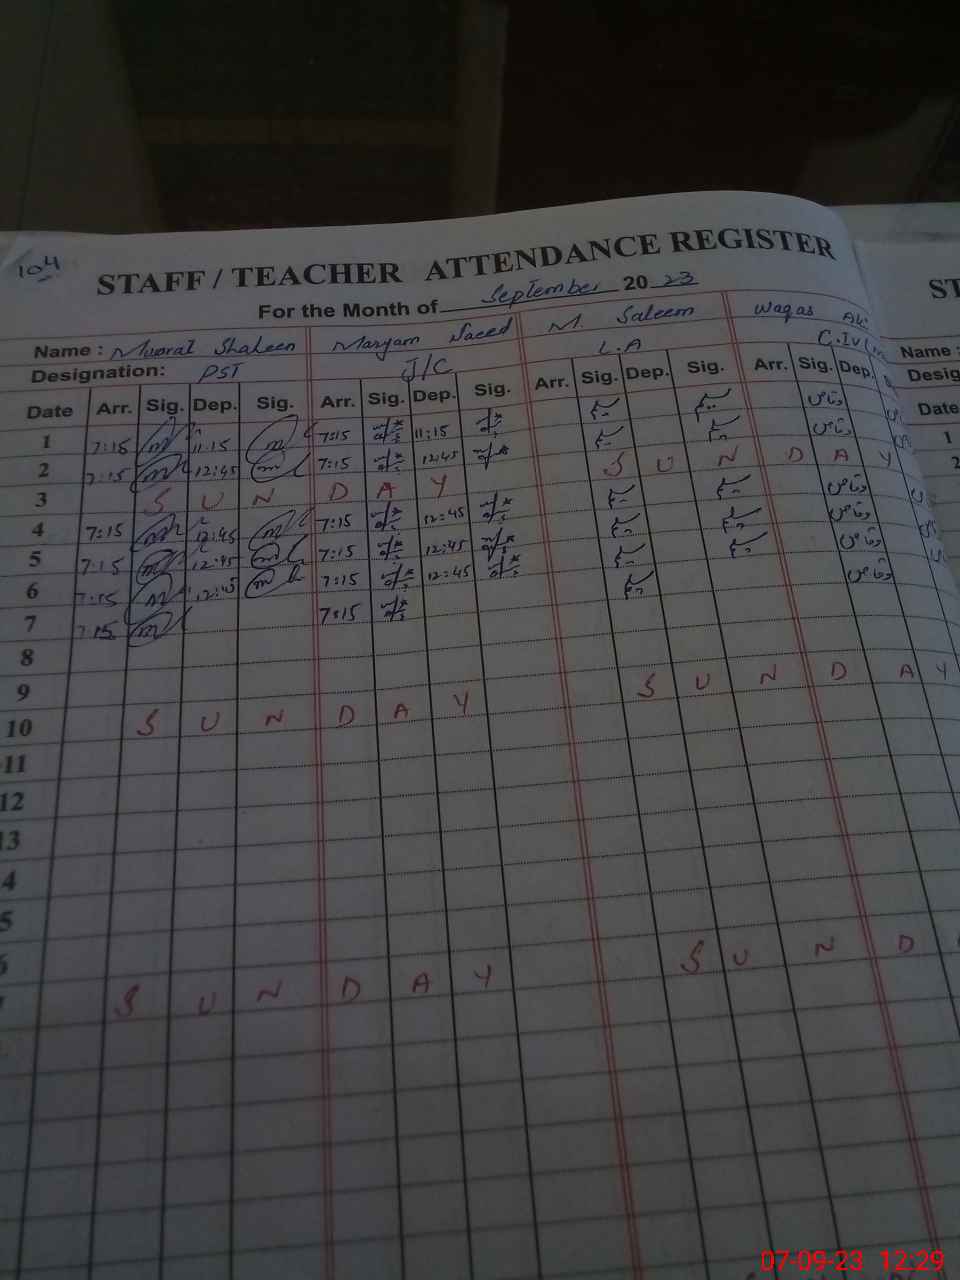 104
STAFF / TEACHER ATTENDANCE REGISTER
For the Month of September 20 23
Name : Shaheen Maryam Saeed M. Saleem Waqas Ali
Designation: PST J/C L.A C.IV
Date Arr. Sig. Dep. Sig. Arr. Sig. Dep. Sig. Arr. Sig. Dep. Sig. Arr. Sig. Dep.
1 7:15 11:15 7:15 11:15 وقاص
2 7:15 12:45 7:15 12:45 وقاص
3 S U N D A Y S U N D A Y
4 7:15 12:45 7:15 12:45 وقاص
5 7:15 12:45 7:15 12:45 وقاص
6 7:15 12:45 7:15 12:45 وقاص
7 7:15 7:15 وقاص
8
9
10 S U N D A Y S U N D A Y
11
12
13
4
5
6
S U N D A Y S U N D
ST
Name :
Desig
Date
1
2
07-09-23 12:29